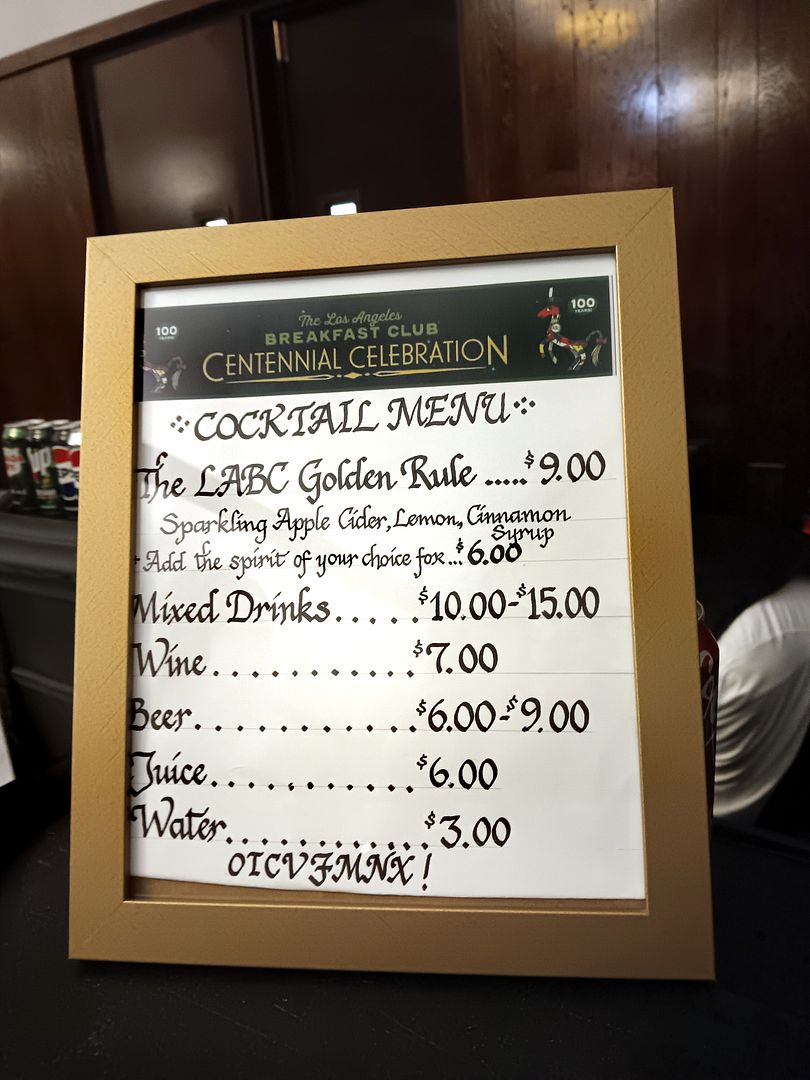 The Los Angeles
BREAKFAST CLUB
CENTENNIAL CELEBRATION
100
100
YEARS!
COCKTAIL MENU
The LABC Golden Rule ..... $9.00
Sparkling Apple Cider, Lemon, Cinnamon
Syrup
+Add the spirit of your choice for... $6.00
Mixed Drinks..... $10.00-$15.00
Wine........... $7.00
Beer............ $6.00-$9.00
Juice........... $6.00
Water............ $3.00
OTCVFMNX!
UP